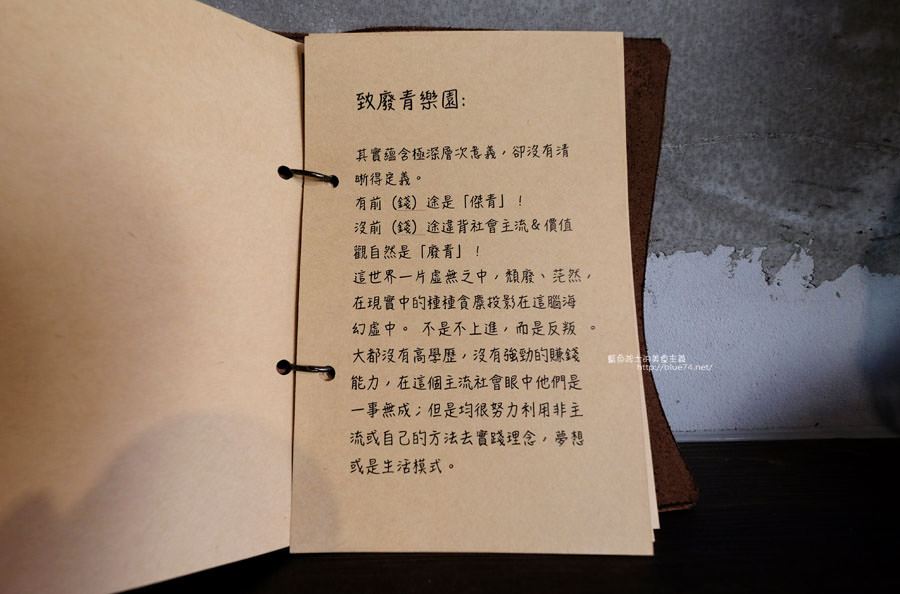 致廢青樂園:
其實蘊含極深層次意義，卻沒有清
晰得定義。
有前（錢）途是「傑青」！
沒前（錢）途違背社會主流＆價值
觀自然是「廢青」！
這世界一片虛無之中，頹廢、茫然，
在現實中的種種貪慾投影在這腦海
幻虛中。 不是不上進，而是反叛 。
大都沒有高學歷，沒有強勁的賺錢
能力，在這個主流社會眼中他們是
一事無成；但是均很努力利用非主
流或自己的方法去實踐理念，夢想
或是生活模式。
藍色起士的美食主義
http://blue74.net/